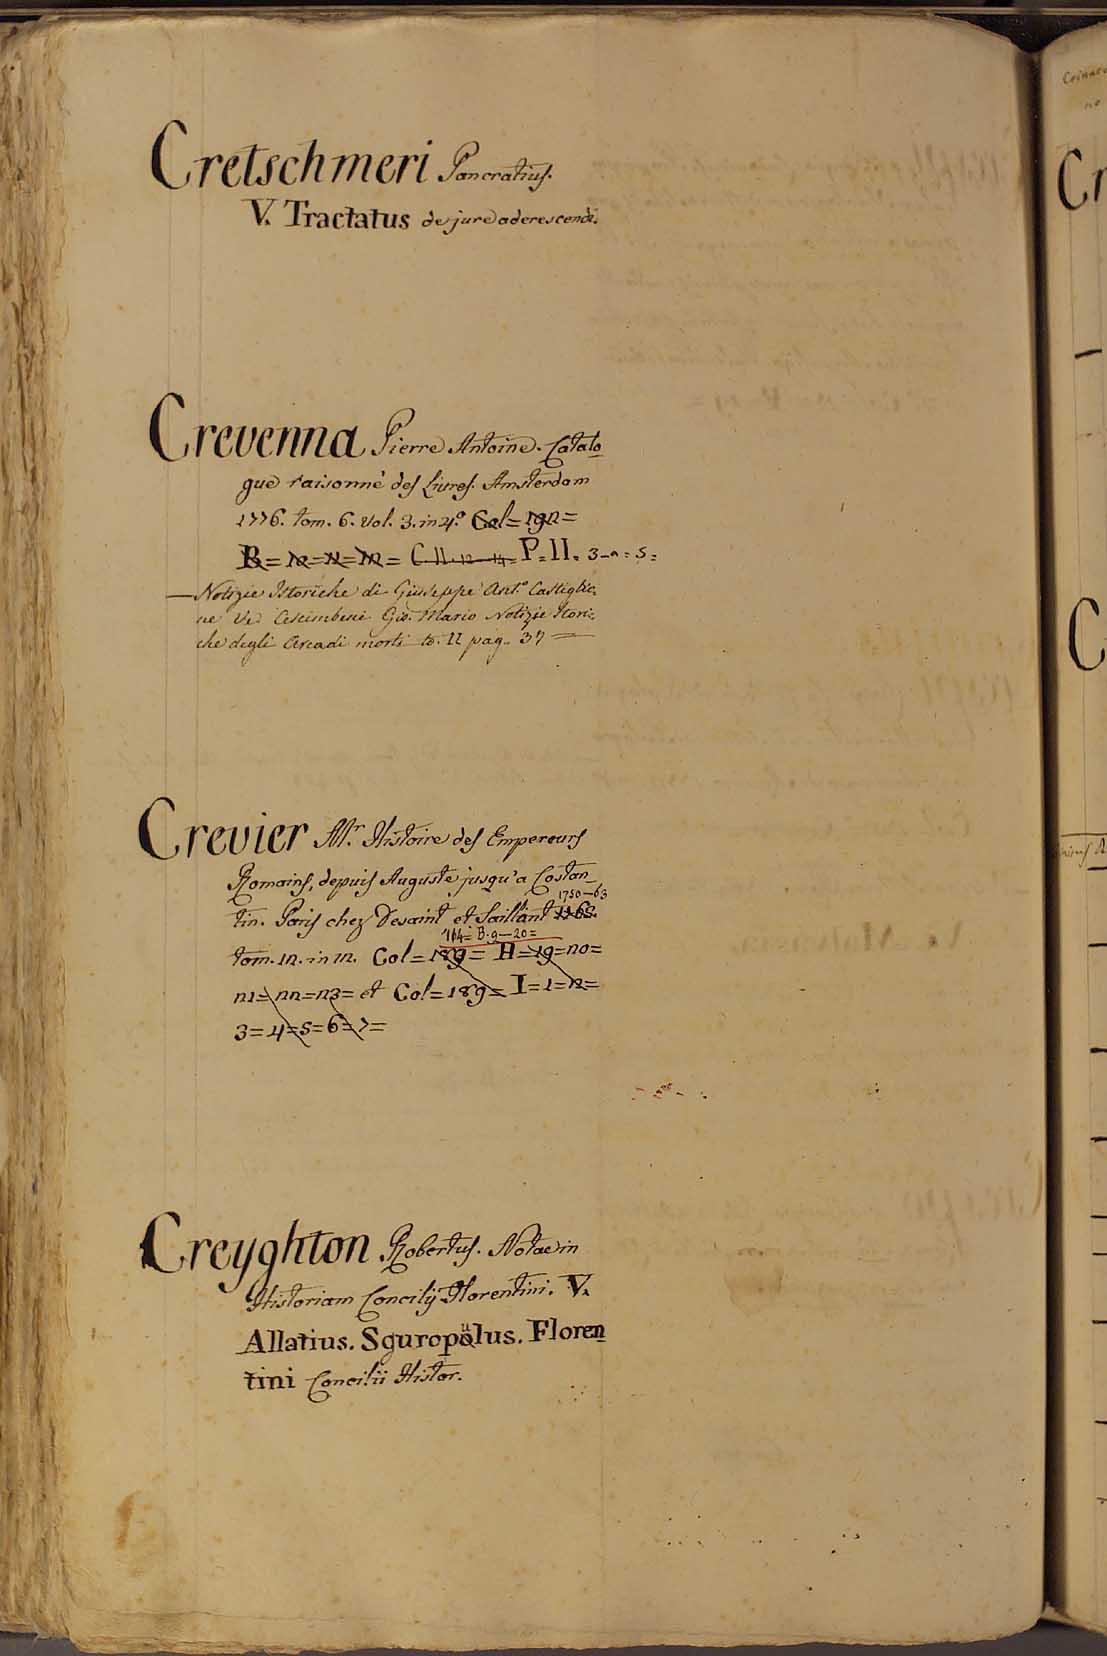 Cretschmeri Pancratius.
V. Tractatus de jure aderescendi.
Crevenna Pierre Antoine. Catalo_
gue raisonné des Livres. Amsterdam
1776. tom. 6. vol. 3. in 4.° Col=
B= C.II. 12 14= P.II. 3-4=5=
Notizie Istoriche di Giuseppe Ant.° Castiglio_
ne Ve. Crescimbeni Gio. Mario Notizie Stori_
che degli Arcadi morti to. II pag. 37 =
Crevier Mr. Histoire des Empereurs
Romains, depuis Auguste jusqu'a Costan_
1750-63
tin. Paris chez Desaint et Saillant 1763.
164= B.9-20=
tom. 12. in 12. Col=189= H=19=20=
21=22=23= et Col=189= I=1=2=
3=4=5=6=7=
Creyghton Robertus. Notae in
Historiam Concilij Florentini. V.
Allatius. Sguropulus. Floren_
tini Concilii Histor.
Cr
C